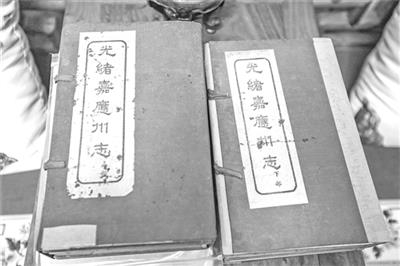 光緒嘉應州志
光緒嘉應州志
下部